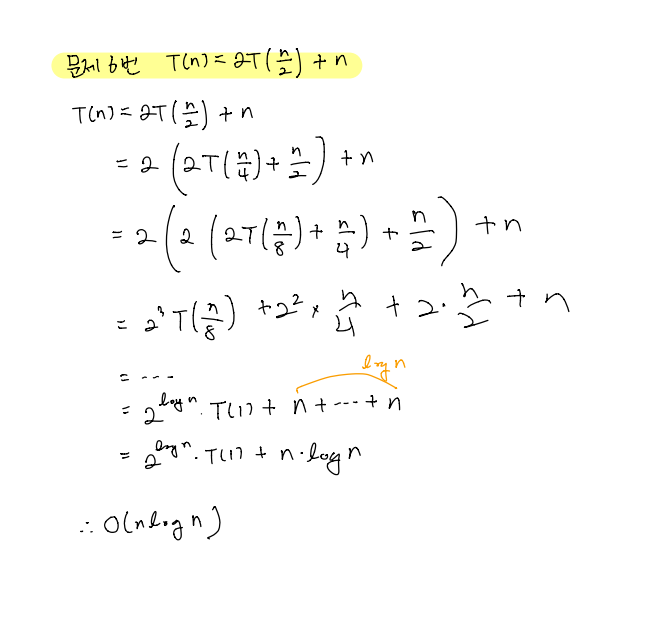 문제 6번 T(n) = 2T(n/2) + n
T(n) = 2T(n/2) + n
= 2(2T(n/4) + n/2) + n
= 2(2(2T(n/8) + n/4) + n/2) + n
= 2³T(n/8) + 2² × n/4 + 2·n/2 + n
= ----
log n
= 2^(log n) · T(1) + n + --- + n
= 2^(log n) · T(1) + n · log n
∴ O(n log n)